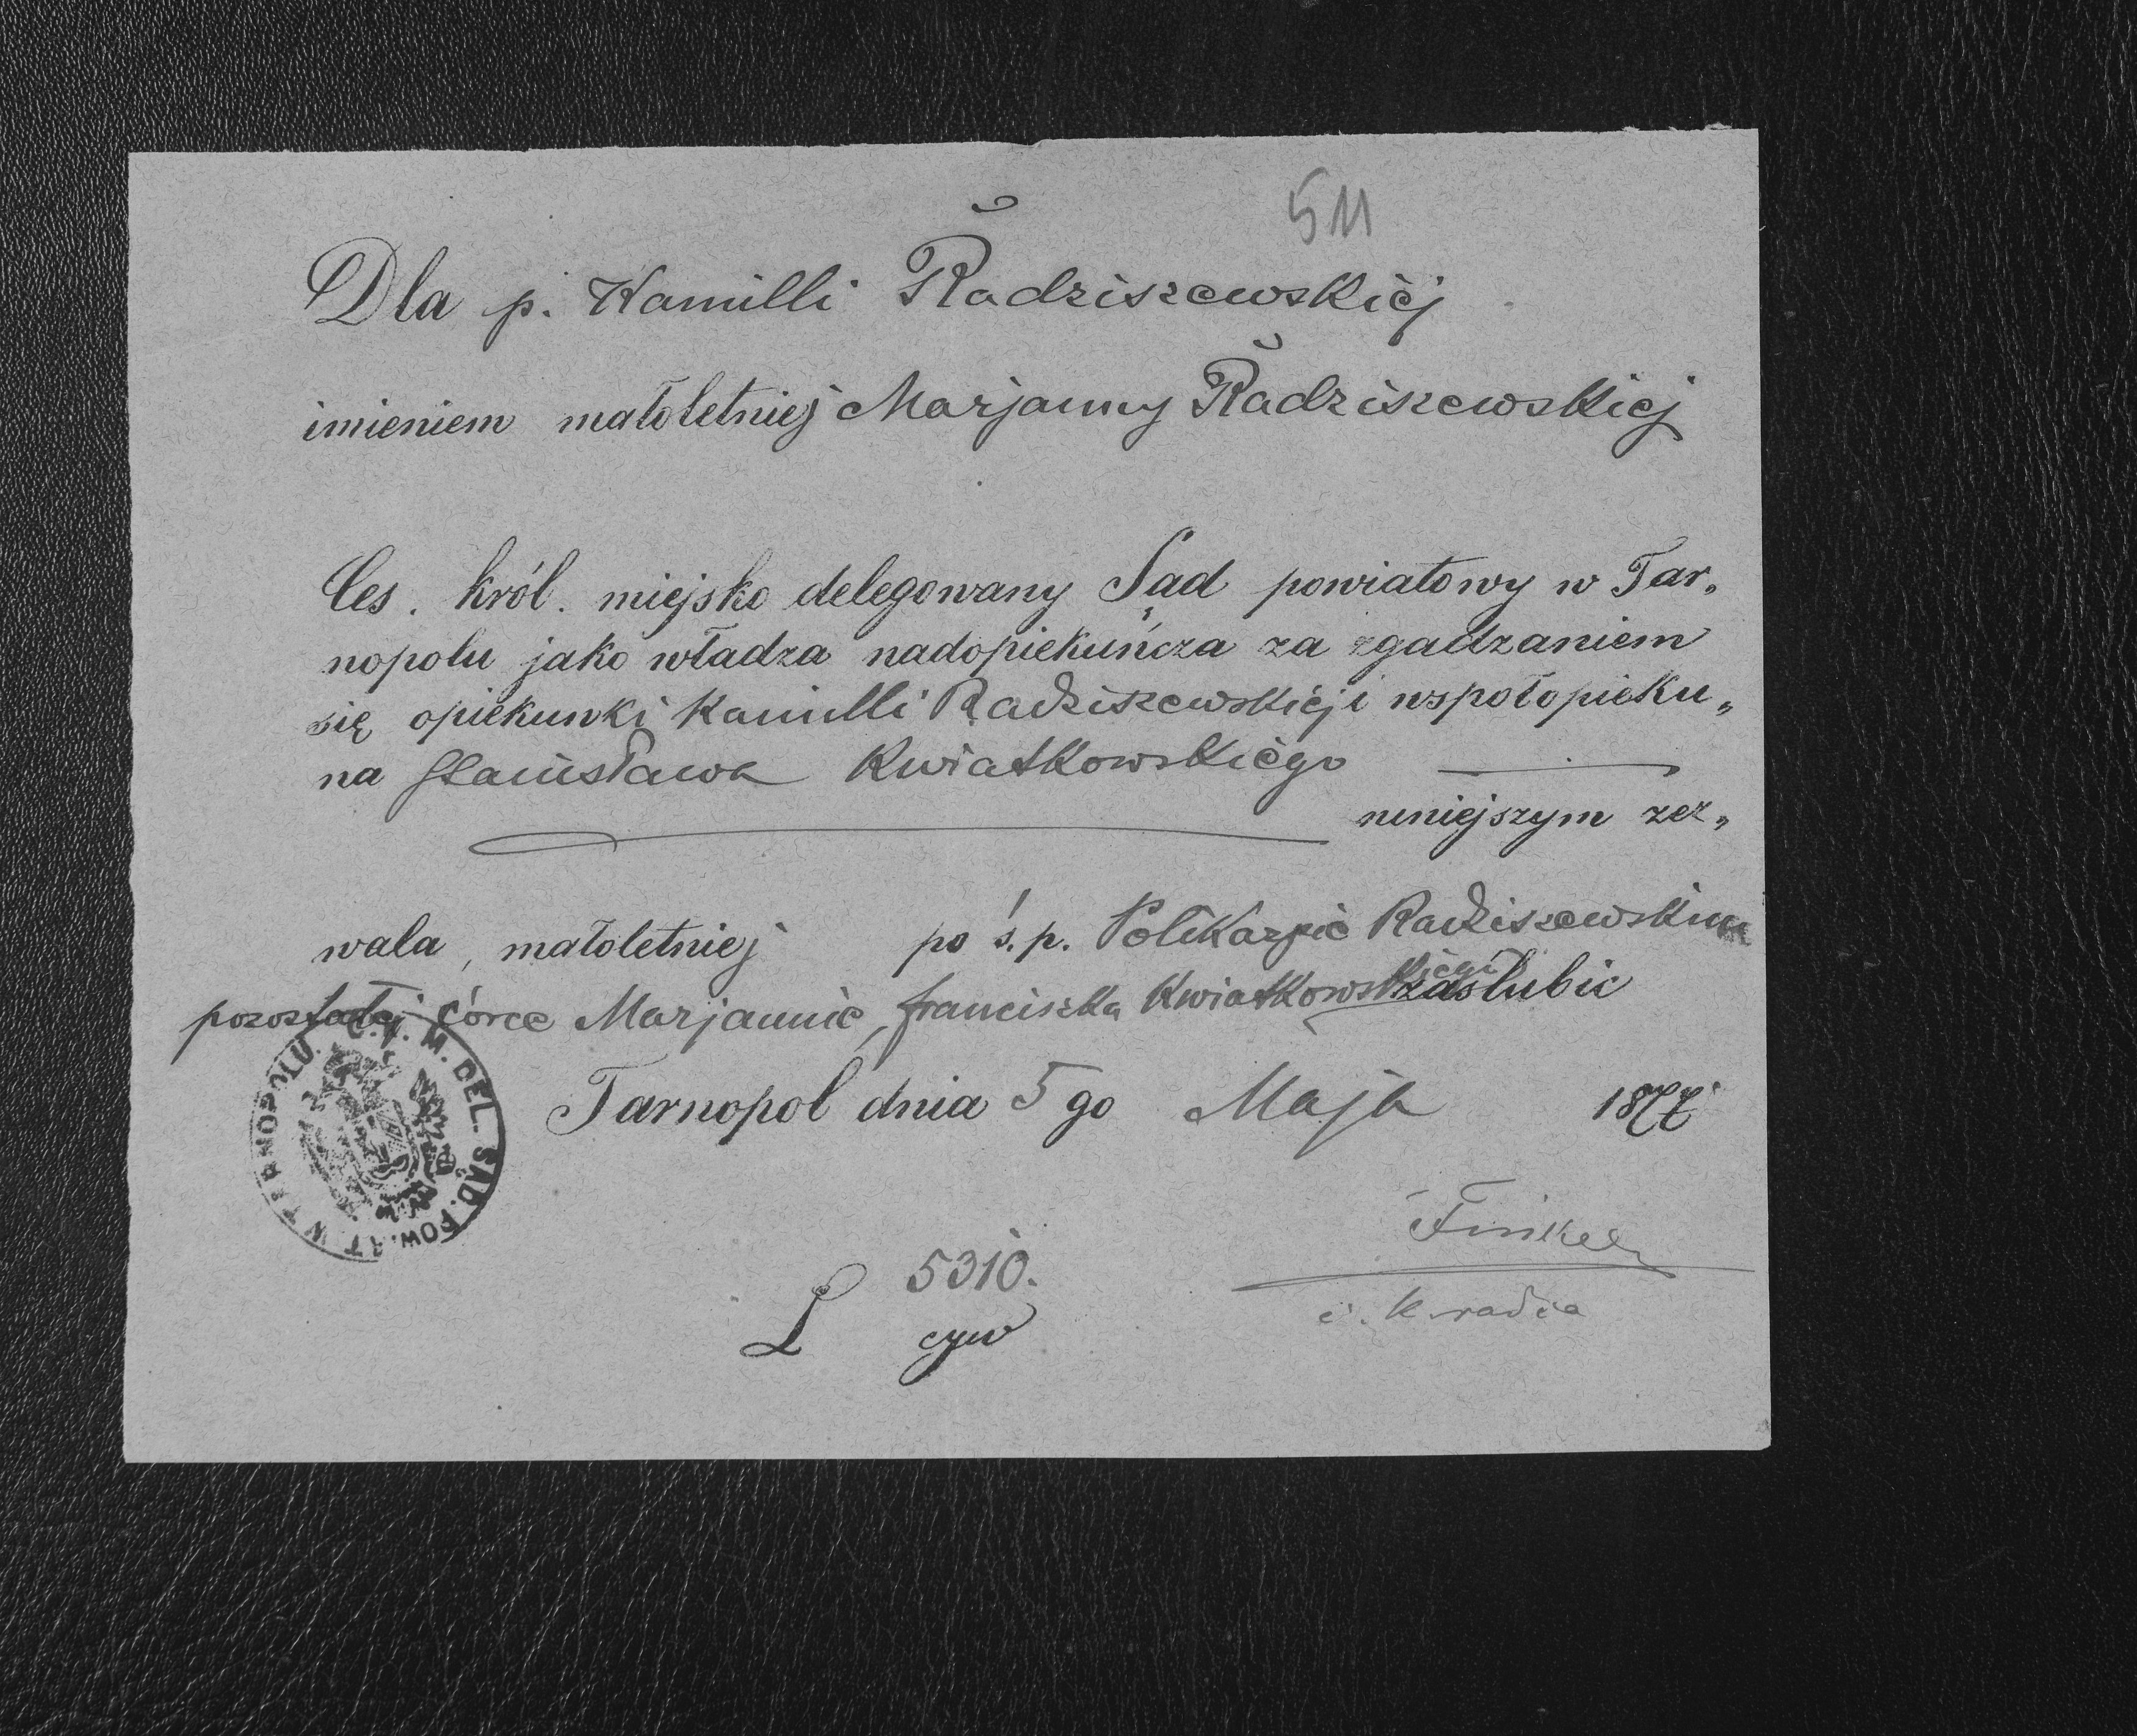 511
Dla p. Kamilli Radziszewskiéj
imieniem małoletniej Marjanny Radziszewskiej
Ces. król. miejsko delegowany Sąd powiatowy w Tar„
nopolu jako władza nadopiekuńcza za zgadzaniem
się opiekunki Kamilli Radziszewskiéj i wspołopieku„
na Stanisława Kwiatkowskiégo
niniejszym zez„
wala, małoletniej po ś. p. Polikarpie Radziszewskim
pozostałej córce Marjannie, Franciszka Kwiatkowskiégo zaślubić
Tarnopol dnia 5 go Maja 1877
C. K. M. DEL. SĄD. POWIAT. W TARNOPOLU.
Finkel
c. k. radca
L 5310.
cyw